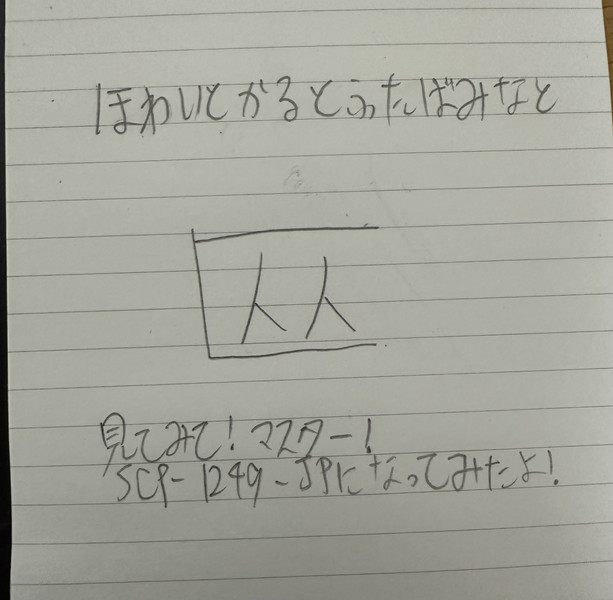 ほわいとがるとふたばみなと
人人
見てみて!マスター!
SCP-1249-JPになってみたよ!